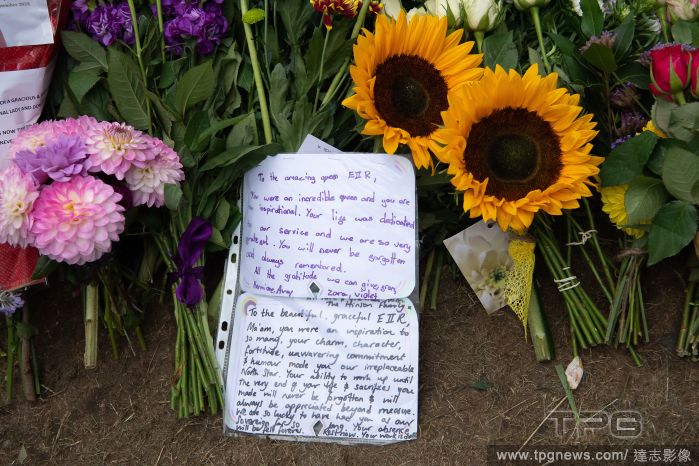 To the amazing queen EIIR,
You were an incredible queen and you are
inspirational. Your life was dedicated
our service and we are so very
grateful. You will never be forgotten
and always remembered.
All the gratitude we can give, from
Hermione, Amy, Zara, violet
The Hinson Family
To the beautiful, graceful EIIR,
Ma'am, you were an inspiration to
so many, your charm, character,
fortitude, unwavering commitment
& humour made you our irreplaceable
North Star. Your ability to work up until
The very end of your life & sacrifices you
made will never be forgotten & will
always be appreciated beyond measure.
We are so lucky to have had you as our
Sovereign for so long. Your absence
will be felt forever. Rest now. Your work is
TPG
www.tpgnews.com / 達志影像